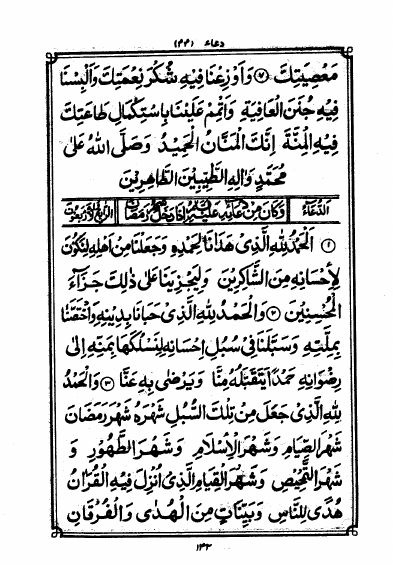 دعاء (٤٤)
مَعْصِيَتِكَ ⑦ وَاَوْزِعْنَا فِيهِ شُكْرَ نِعْمَتِكَ وَاَلْبِسْنَا
فِيهِ جُنَنَ الْعَافِيَةِ وَاَتْمِمْ عَلَيْنَا بِاسْتِكْمَالِ طَاعَتِكَ
فِيهِ الْمِنَّةَ اِنَّكَ الْمَنَّانُ الْحَمِيدُ وَصَلَّى اللهُ عَلٰى
مُحَمَّدٍ وَاٰلِهِ الطَّيِّبِينَ الطَّاهِرِينَ
الدُّعَاءُ وَكَانَ مِنْ دُعَائِهِ عَلَيْهِ السَّلَامُ اِذَا دَخَلَ شَهْرُ رَمَضَانَ الرَّابِعُ وَالْاَرْبَعُونَ
① اَلْحَمْدُ لِلّٰهِ الَّذِى هَدَانَا لِحَمْدِهِ وَجَعَلَنَا مِنْ اَهْلِهِ لِنَكُونَ
لِاِحْسَانِهِ مِنَ الشَّاكِرِينَ وَلِيَجْزِيَنَا عَلٰى ذٰلِكَ جَزَآءَ
الْمُحْسِنِينَ ② وَالْحَمْدُ لِلّٰهِ الَّذِى حَبَانَا بِدِينِهِ وَاخْتَصَّنَا
بِمِلَّتِهِ وَسَبَّلَنَا فِى سُبُلِ اِحْسَانِهِ لِنَسْلُكَهَا بِمَنِّهِ اِلٰى
رِضْوَانِهِ حَمْدًا يَتَقَبَّلُهُ مِنَّا وَيَرْضٰى بِهِ عَنَّا ③ وَالْحَمْدُ
لِلّٰهِ الَّذِى جَعَلَ مِنْ تِلْكَ السُّبُلِ شَهْرَهُ شَهْرَ رَمَضَانَ
شَهْرَ الصِّيَامِ وَشَهْرَ الْاِسْلَامِ وَشَهْرَ الطَّهُورِ وَ
شَهْرَ التَّمْحِيصِ وَشَهْرَ الْقِيَامِ الَّذِى اُنْزِلَ فِيهِ الْقُرْاٰنُ
هُدًى لِلنَّاسِ وَبَيِّنَاتٍ مِنَ الْهُدٰى وَالْفُرْقَانِ
١٤٢